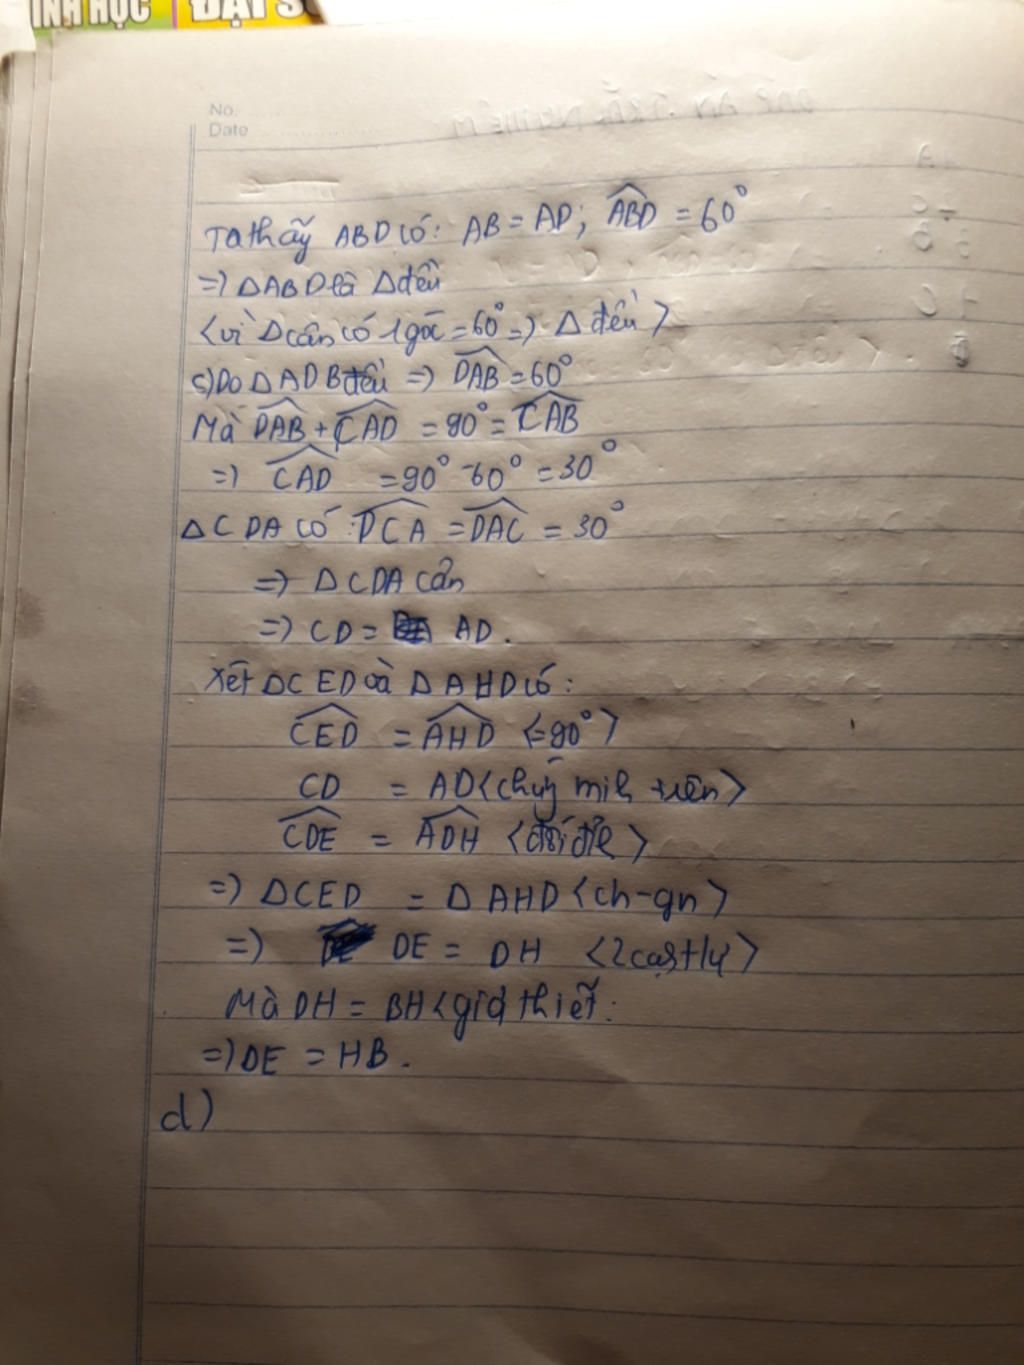 INH HỌC ĐẠI S
No.
Date
Ta thấy ABD có: AB = AD; ABD = 60°
=> ΔABD là Δ đều
<vì Δ cân có 1 góc = 60° => Δ đều>
c) Do ΔADB đều => DAB = 60°
Mà DAB + CAD = 90° = CAB
=> CAD = 90° - 60° = 30°
ΔCDA có: DCA = DAC = 30°
=> ΔCDA cân
=> CD = AD.
Xét ΔCED và ΔAHD có:
CED = AHD <=90°>
CD = AD <chứng minh trên>
CDE = ADH <đối đỉnh>
=> ΔCED = ΔAHD <ch-gn>
=> DE = DH <2 cạnh tư>
Mà DH = BH <giả thiết.
=> DE = HB.
d)